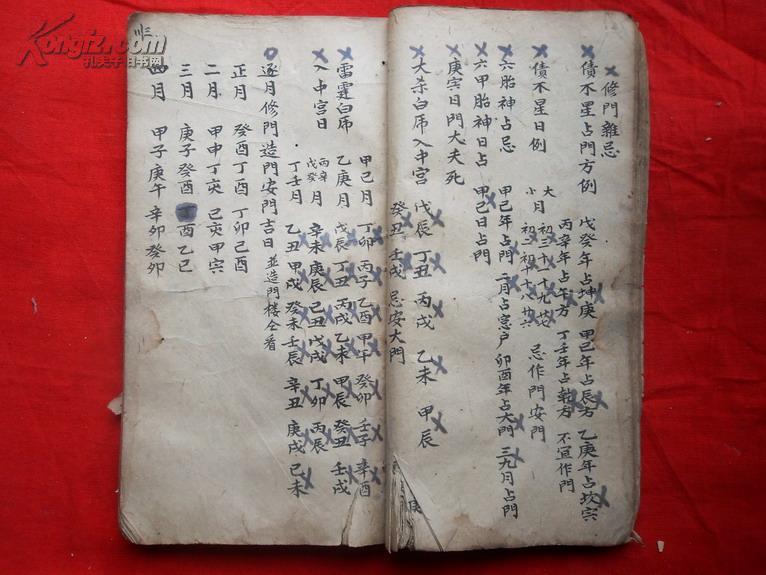 修門雜忌
債不星占門方例 戊癸年占坤庚 甲己年占辰方 乙庚年占坎宫
丙辛年占午方 丁壬年占乾方 不宜作門
債不星日例 大 小 月 初三十一十九廿七 初二初十十八廿六 忌作門安門
六胎神占忌 甲己年占門 二月占窓户 卯酉年占大門 三九月占門
六甲胎神日占 甲己日占門
庚寅日門大夫死
大杀白虎入中宫 戊辰 丁丑 丙戌 乙未 甲辰
癸丑 壬戌 忌安大門
雷霆白虎入中宫日 甲己月 丁卯 丙子 乙酉 甲午 癸卯 壬子 辛酉
乙庚月 戊辰 丁丑 丙戌 乙未 甲辰 癸丑 壬戌
丙辛戊癸月 辛未 庚辰 己丑 戊戌 丁卯 丙辰
丁壬月 乙丑 甲戌 癸未 壬辰 辛丑 庚戌 己未
逐月修門造門安門吉日 並造門楼仝看
正月 癸酉 丁酉 丁卯 己酉
二月 甲申 丁亥 己亥 甲寅
三月 庚子 癸酉 丁酉 乙巳
四月 甲子 庚午 辛卯 癸卯
Kongfz.com
孔夫子旧书网